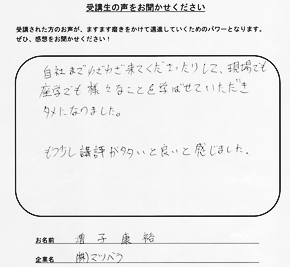 受講生の声をお聞かせください
受講された方のお声が、ますます磨きをかけて邁進していくためのパワーとなります。
ぜひ、感想をお聞かせください！
自社までわざわざ来てくださったりして、現場でも
座学でも様々なことを学ばせていただき
タメになりました。
もう少し講評が多いと良いと感じました。
お名前 子 康裕
企業名 ㈱マツバラ